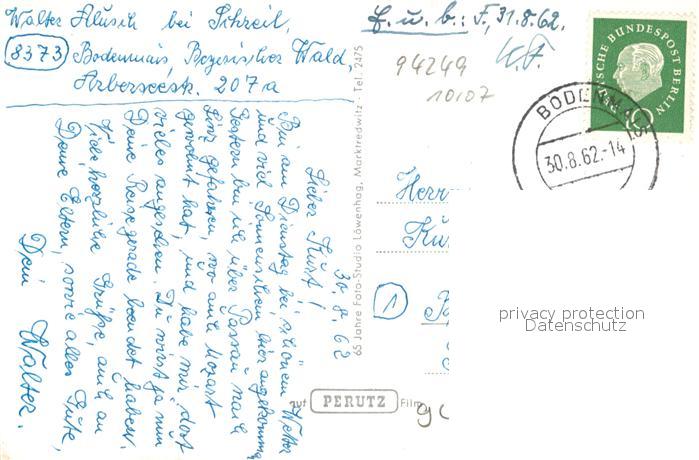 Walter Klusch bei Schreil,
8373 Bodenmais, Bayerischer Wald,
Arberseestr. 207a
E. u. b.: F, 31.8.62.
K.F.
94249
10107
30.8.62
Lieber Kurt!
Bin am Dienstag bei schönem Wetter
und viel Sonnenschein hier angekommen.
Gestern bin ich über Passau nach
Linz gefahren, wo auch Mozart
gewohnt hat, und habe mir dort
vieles angesehen. Du wirst ja nun
Deine Reise gerade beendet haben.
Viele herzliche Grüsse, auch an
Deine Eltern, sowie alles Gute,
Dein Walter.
65 Jahre Foto-Studio Löwenhag, Marktredwitz · Tel. 2475
auf PERUTZ Film
Herr
Ku
1
DEUTSCHE BUNDESPOST BERLIN
10
BODENMAIS
30.8.62.-14
privacy protection
Datenschutz